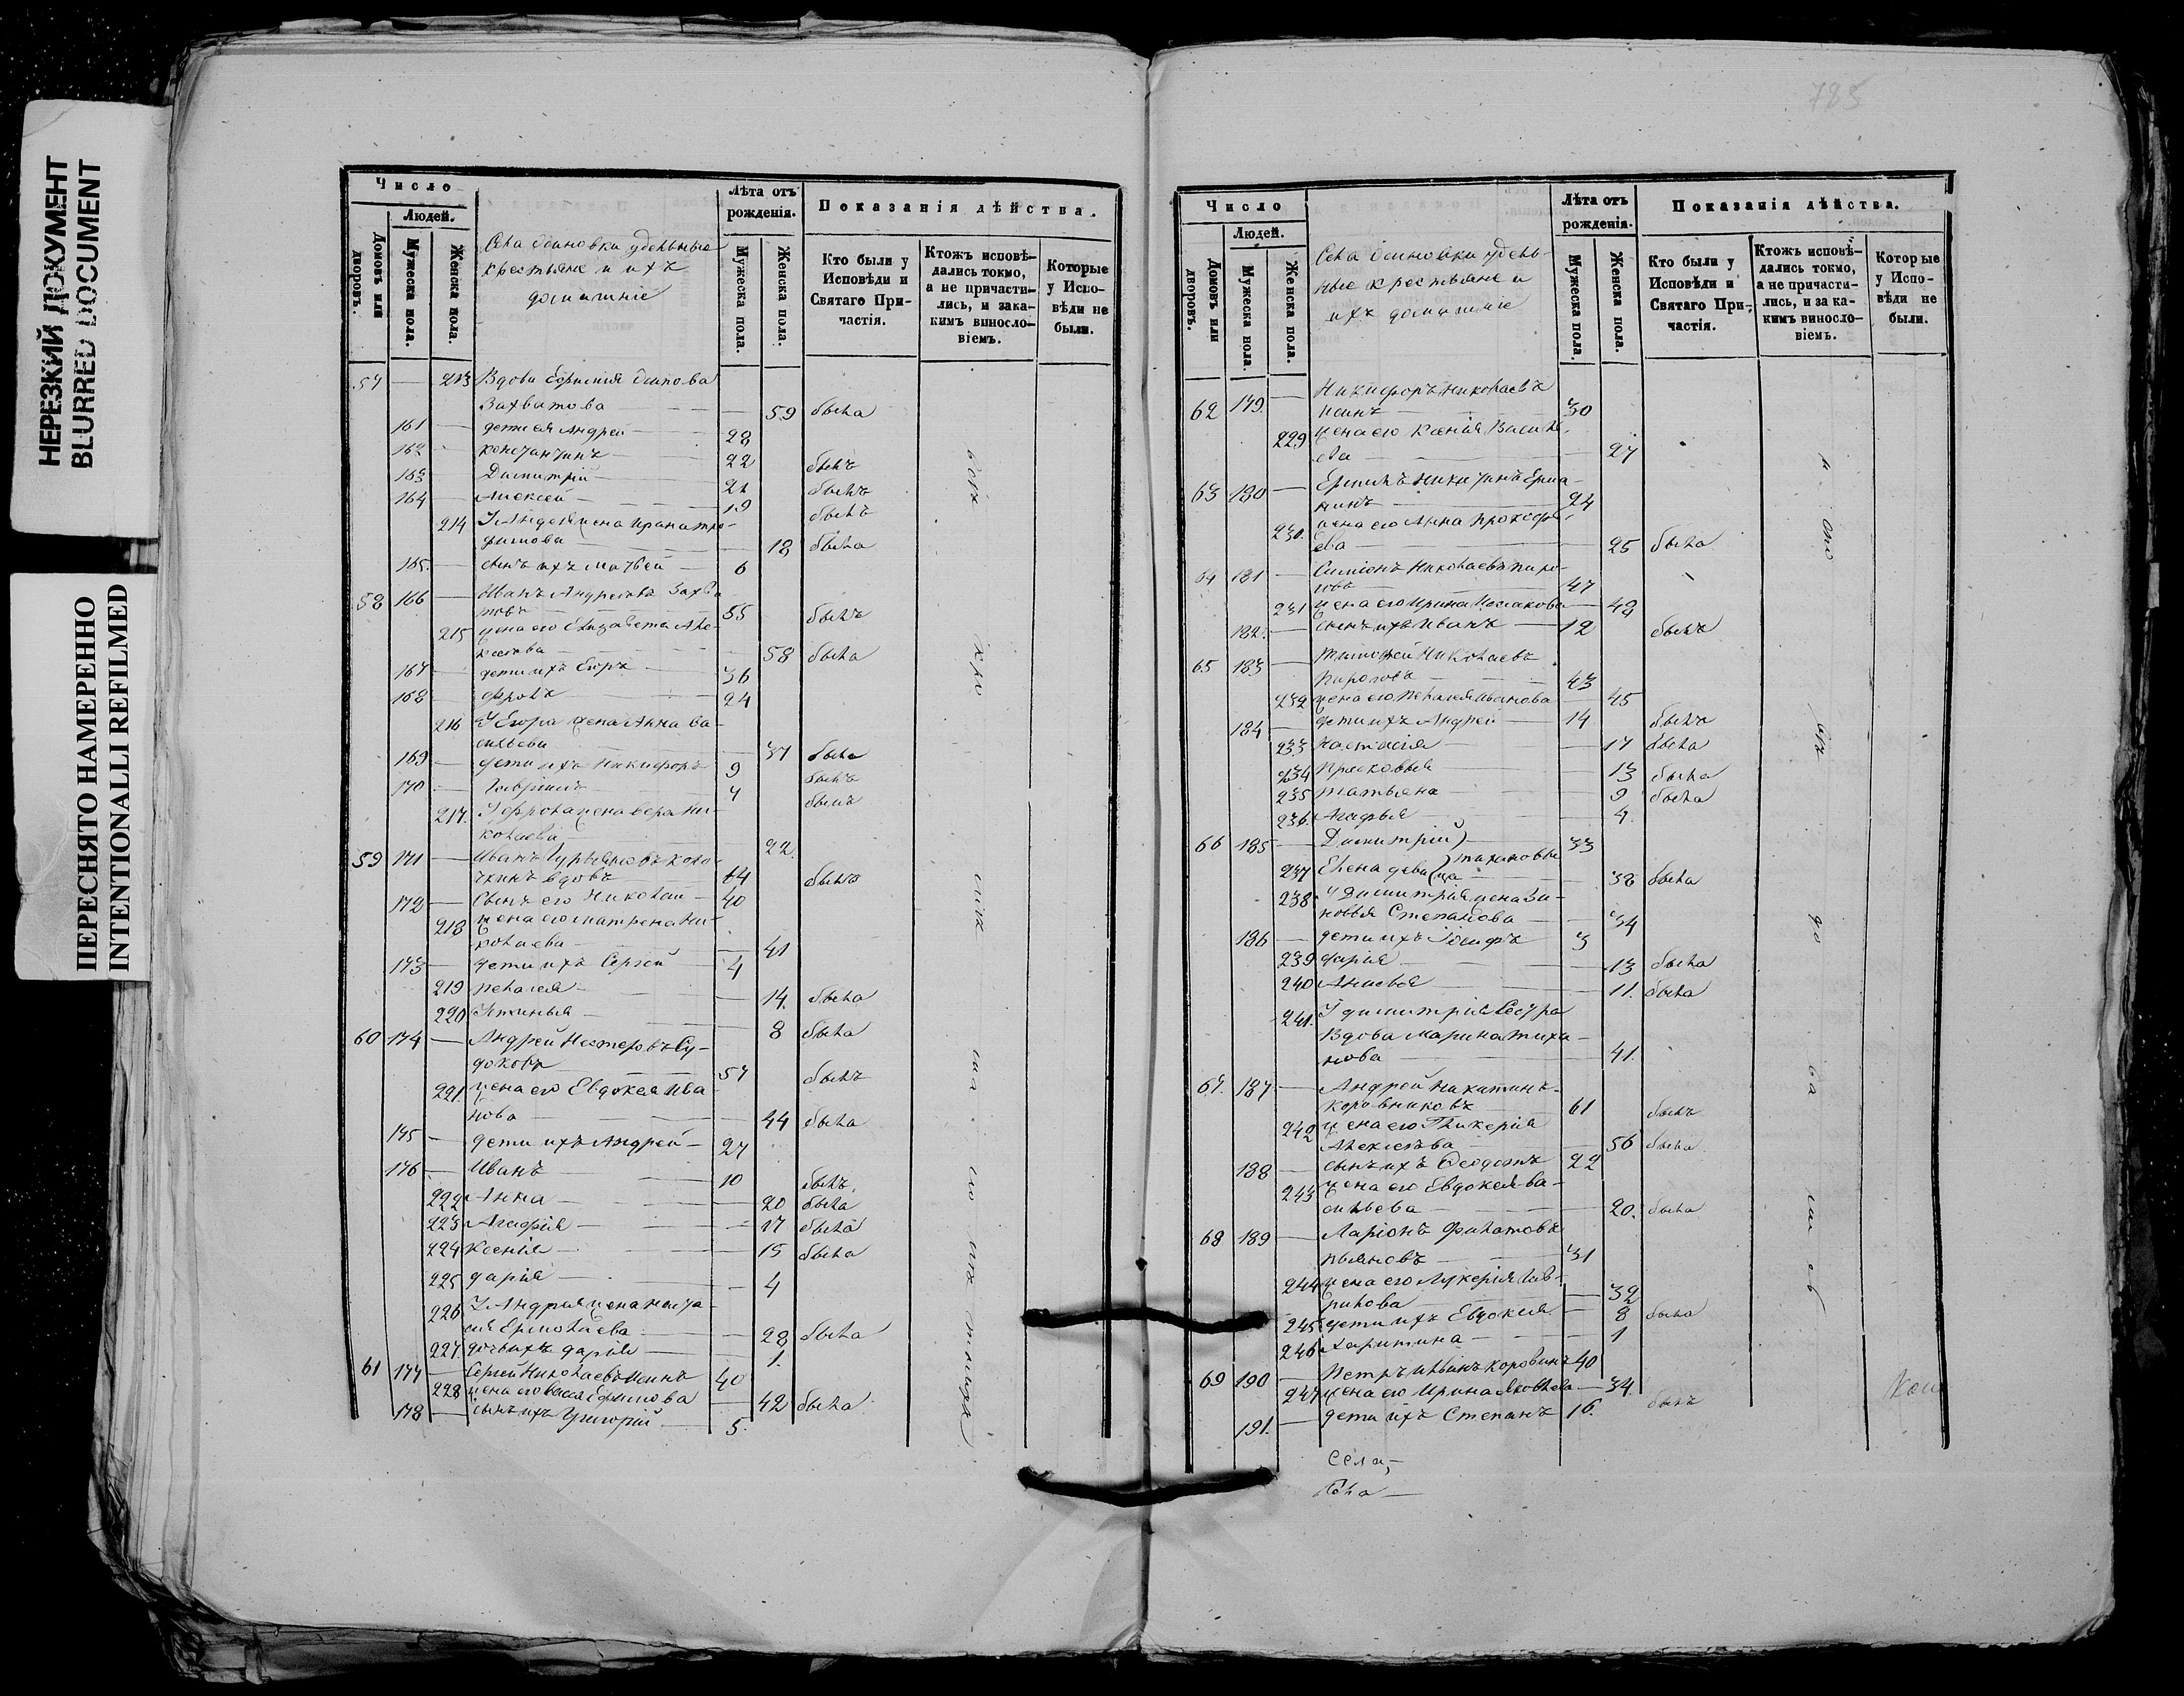 НЕРЕЗКИЙ ДОКУМЕНТ
BLURRED DOCUMENT
ПЕРЕСНЯТО НАМЕРЕННО
INTENTIONALLI REFILMED
Число
Людей.
Домовъ или дворовъ.
Мужеска пола.
Женска пола.
Села удельные
крестьяне и ихъ
домашніе
Лѣта отъ рожденія.
Мужеска пола.
Женска пола.
Показанія дѣйства.
Кто были у Исповѣди и Святаго Причастія.
Ктожъ исповѣ-
дались токмо,
а не причасти-
лись, и зака-
кимъ виносло-
віемъ.
Которые
у Испо-
вѣди не
были.
57 — 213 Вдова
Захватова — 59 была
161 — дети ея Андрей — 28
162 — Константинъ — 22 былъ
163 — Димитрій — 21 былъ
164 — Алексей — 19 былъ
214 У Андрея жена Ирина Тро-
фимова — 18 была
165 — сынъ ихъ Матвей — 6
58 166 — Иванъ Андреевъ Захва
товъ — 55 былъ
215 жена его Елизавета Але-
ксеева — 58 была
167 — дети ихъ Егоръ — 36
168 — Фролъ — 24
216 У Егора жена Анна Ва-
сильева — 37 была
169 — дети ихъ Никифоръ 9 былъ
170 — Гаврiилъ — 7 былъ
217. У Фрола жена Вера Ни-
колаева — 22.
59 171 — Иванъ
вдовъ 64 былъ
172 — Сынъ его Николай — 40
218 жена его Матрена Ни-
колаева — 41
173 — дети ихъ Сергей — 4
219 Пелагея — 14. была
220 Устинья — 8 была
60 174 — Андрей Нестеровъ Су-
доковъ — 57 былъ
221. жена его Евдокея Ива
нова — 44 была
175 — дети ихъ Андрей — 27
176 — Иванъ — 10 былъ
222 Анна — 20 была
223 Агафiя — 17 была
224 Ксенiя — 15 была
225 Дарiя — 4
226 У Андрея жена Наста
сiя Ермолаева — 28 была
227. дочь ихъ Дарiя — 1.
61 177 — Сергей Николаевъ Исинъ 40
228 жена его Ефимова — 42 была
178 — сынъ ихъ Григорiй — 5.
785
Число
Людей.
Домовъ или дворовъ.
Мужеска пола.
Женска пола.
Села удель-
ные крестьяне и
ихъ домашніе
Лѣта отъ рожденія.
Мужеска пола.
Женска пола.
Показанія дѣйства.
Кто были у
Исповѣди и
Святаго При-
частія.
Ктожъ исповѣ-
дались токмо,
а не причасти-
лись, и за ка-
кимъ виносло-
віемъ.
Которые
у Испо-
вѣди не
были.
62 179. — Никифоръ Николаевъ
Исинъ — 30
229 жена его Ксенiя Василь
ева — 27
63 180 — Ермилъ
24
230. жена его Анна Прокофь
ева — 25 была
64 181 — Симiонъ Николаевъ Пиро
говъ — 47
231 жена его Ирина Исаакова — 42
182. — сынъ ихъ Иванъ — 12 былъ
65 183 — Тимофей Николаевъ
Пироговъ — 43
232 жена его Пелагея Иванова — 45
184 — дети ихъ Андрей — 14 былъ
233 Настасiя — 17 была
234 Прасковья — 13 была
235 Татьяна — 9 была
236 Агафья — 4.
66 185 — Димитрiй) — 33
237 Елена деви(ца) Тихоновы — 38 была
238. У Димитрiя жена Зи-
новья Степанова — 34
186 — дети ихъ Iосифъ 3
239 Дарiя — 13 была
240 Анисья — 11. была
241. У Димитрiя Сестра
Вдова Марина Тихо-
нова — 41.
67. 187 — Андрей Никитинъ
Коровниковъ — 61 былъ
242 жена его Гликерiя
Алексеева — 56 была
188 — сынъ ихъ Феодотъ 22
243 жена его Евдокея Ва-
сильева — 20. была
68 189 — Ларiонъ Филатовъ
Пьяновъ — 31
244 жена его Лукерiя Гав-
рилова — 32
245 дети ихъ Евдокея — 8 была
246 Харитина — 1
69 190 — Петръ Коровинъ 40
247 жена его Ирина Яковлева — 34
191. — дети ихъ Степанъ 16. былъ
села,